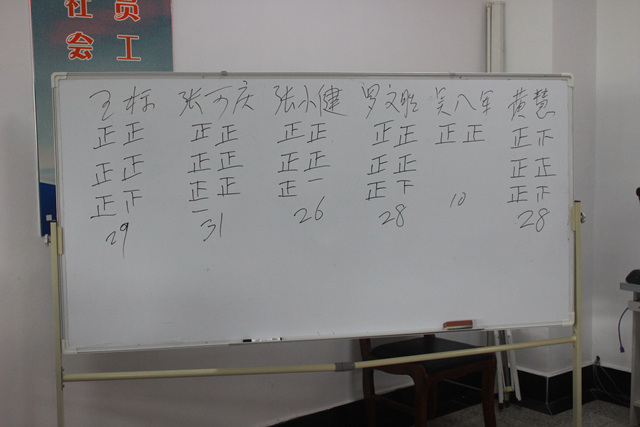 员
社 工
会
王标 张万庆 张小健 罗文胜 吴八军 黄慧
正正 正正 正正 正正 正正 正下
正正 正正 正正 正正 正正
正下 正正 正一 正下 正下
一
29 31 26 28 10 28